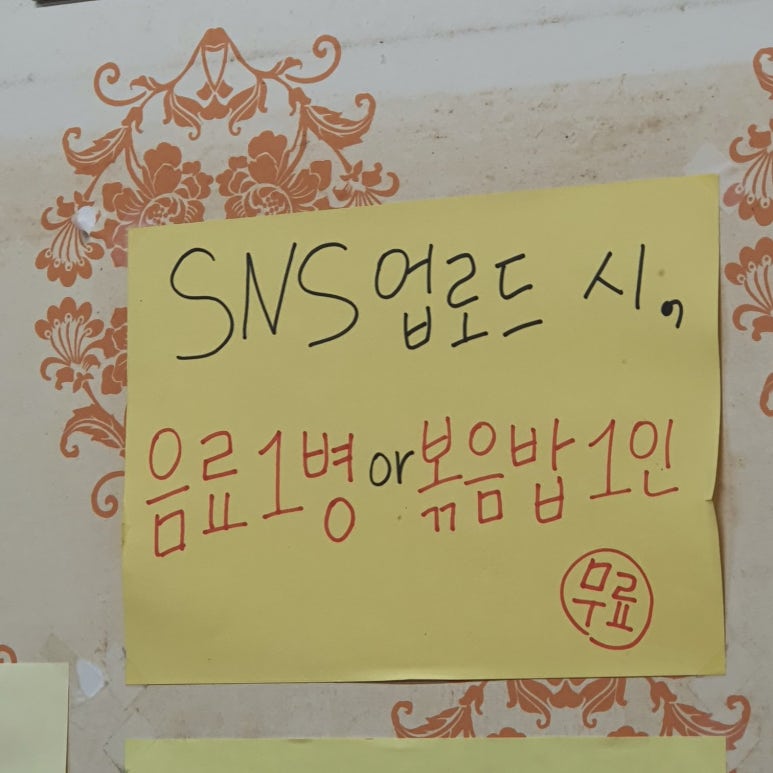 SNS 업로드 시,
음료 1병 or 볶음밥 1인
무료